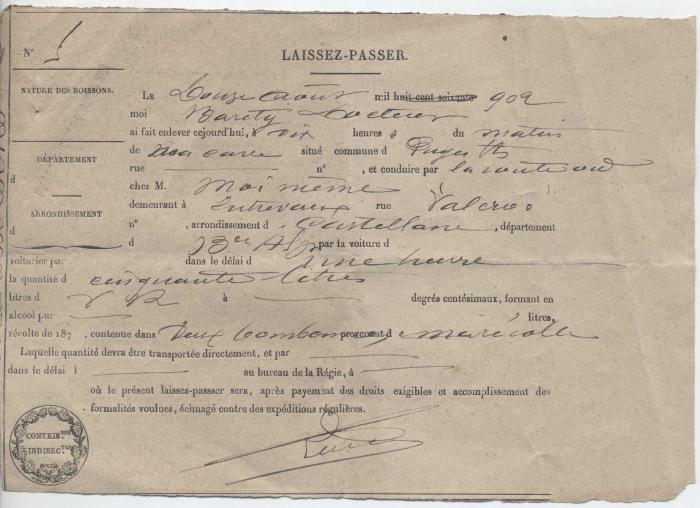 N° 5
LAISSEZ-PASSER.
NATURE DES BOISSONS.
LE Douze Août mil huit cent soixante 902
moi Barety Docteur
ai fait enlever cejourd'hui, à dix heures du matin
de ma cave situé commune d Puget Th
rue n° , et conduire par la route ord
chez M. Moi même
demeurant à Entrevaux rue
n° , arrondissement d Castellane, département
d Bses Alp par la voiture d
DÉPARTEMENT
d
ARRONDISSEMENT
d
voiturier par dans le délai d une heure
la quantité d cinquante litres
litres d V R à degrés centésimaux, formant en
alcool pur litres,
récolte de 187 , contenue dans Deux bombonnes provenant d ma récolte
Laquelle quantité devra être transportée directement, et par
dans le délai d au bureau de la Régie, à
où le présent laissez-passser sera, après payement des droits exigibles et accomplissement des
formalités voulues, échnagé contre des expéditions régulières.
CONTRIB.ons
INDIREC.tes